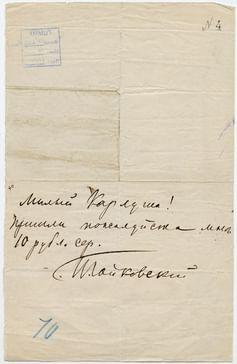 N 4
"Милый Карлуша!
Пришли пожалуйста мне
10 рубл. сер.
П. Чайковский
70